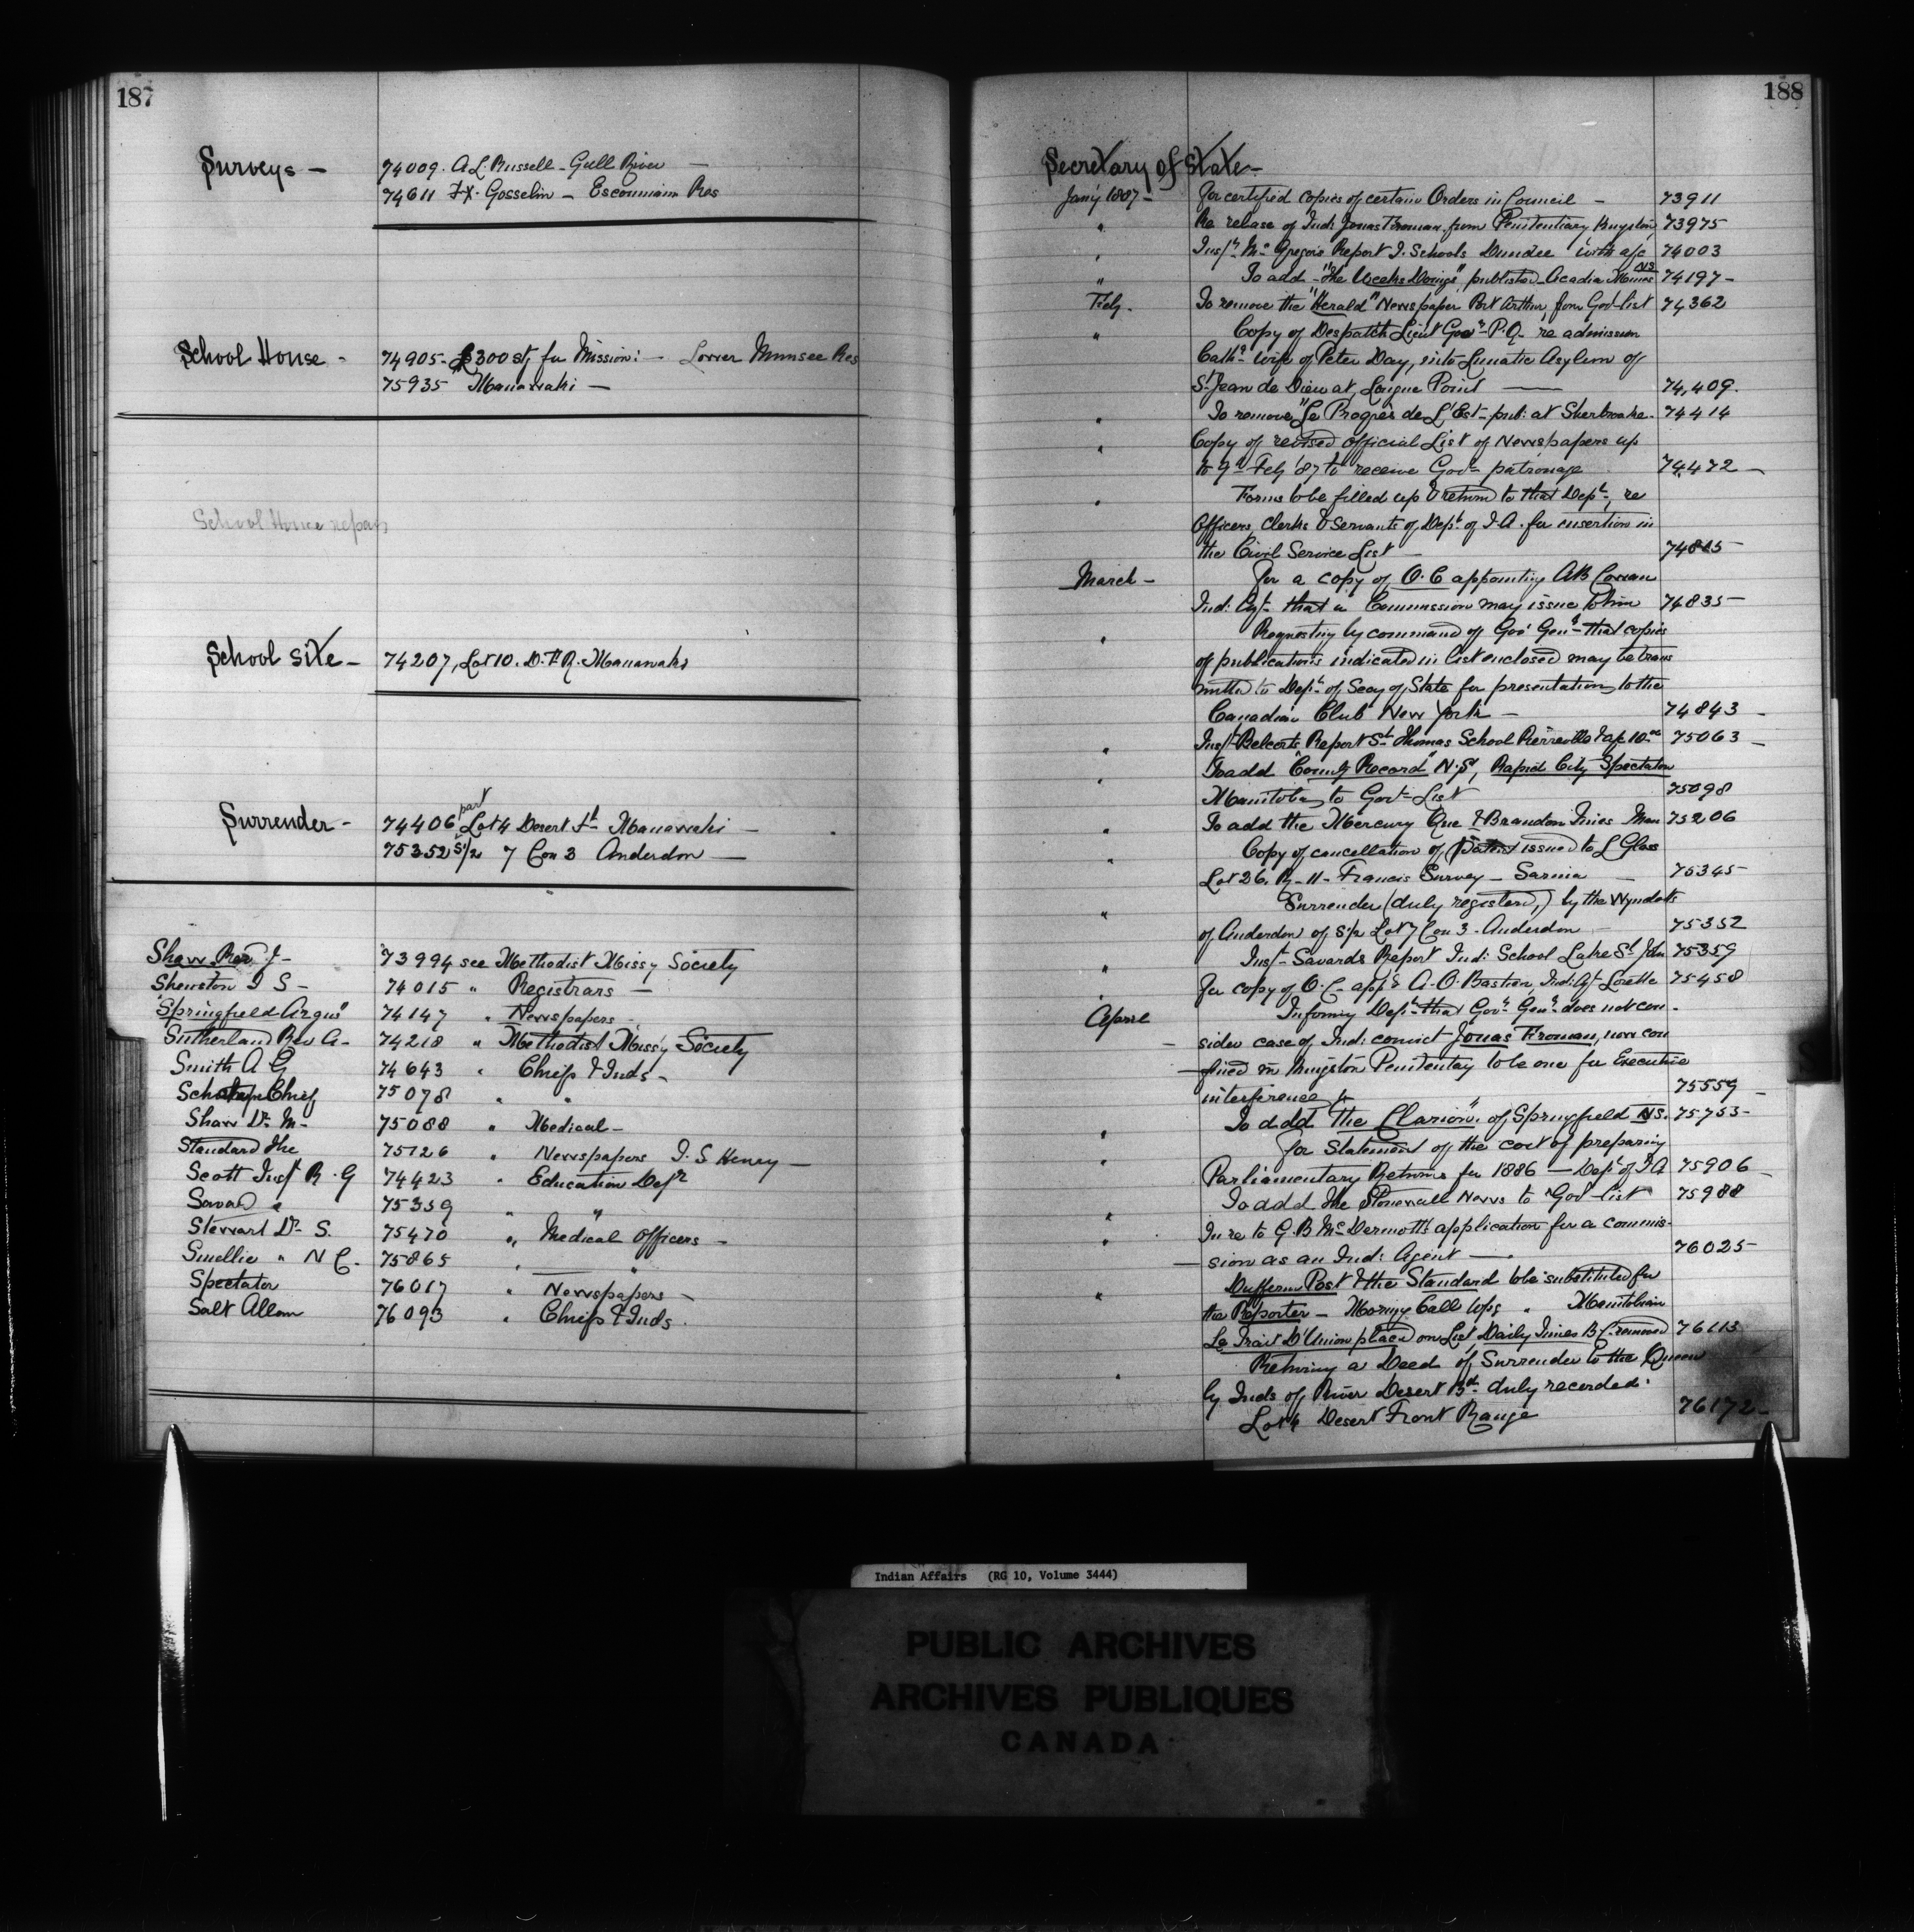 187
Surveys —
74009. A.L. Russell - Gull River —
74611 F.X. Gosselin — Escoumain Res
School House -
74905 - £300 stg for Mission: — Lower Munsee Res
75935 Maniwaki —
School House repairs
School Site —
74207, Lot 10. D.F.R. Maniwaki
Surrender -
74406 part Lot 4 Desert Ft Maniwaki —
75352 S½ 7 Con 3 Anderdon —
Shaw Rev J - 73994 see Methodist Missy Society
Shewston I S - 74015 " Registrars —
"Springfield Argus" 74147 " Newspapers -
Sutherland Rev A - 74218 " Methodist Missy Society
Smith A G 74643 " Chiefs & Inds -
Chief 75078 " "
Shaw Dr M - 75088 " Medical -
Standard The 75126 " Newspapers I. S. Henry —
Scott Inst R. G 74423 " Education Dept
Savard " 75359 " "
Stewart Dr S. 75470 " Medical Officers -
Smellie " N C. 75865 " "
Spectator 76017 " Newspapers -
Salt Allan 76093 " Chiefs & Inds.
188
Secretary of State -
Jany 1887 - For certified copies of certain Orders in Council - 73911
" Re release of Ind: Jonas Froman from Penitentiary Kingston 73975
" Inspr McGregor's Report I. Schools Dundee with a/c 74003
" To add - "The Weeks Doings", published Acadia Mines NS 74197 -
Feby. To remove the "Herald" Newspaper Port Arthur, from Govt list 74,362
" Copy of Despatch Lieut Govr - P.Q. re admission
Cath: wife of Peter Day, into Lunatic Asylum of
St Jean de Dieu at, Longue Point — 74,409.
" To remove "Le Progrès de L'Est - pub: at Sherbrooke. 74414
" Copy of revised official List of Newspapers up
to 9th Feby '87 to receive Govt patronage 74472 -
" Forms to be filled up & returned to that Dept, re
Officers, Clerks & Servants of Dept of I.A. for insertion in
the Civil Service List — 74815 -
March - For a copy of O.C appointing AB Cowan
Ind: Agt - that a Commission may issue to him 74835 -
" Requesting by command of Gov Genl that copies
of publications indicated in list enclosed may be trans
mitted to Dept of Secy of State for presentation to the
Canadian Club New York - 74843 -
" Inspr Belcourt's Report St Thomas School Pierreville & ap 10.00 75063 -
" To add "County Record" N.S, Rapid City Spectator
Manitoba to Govt List 75098
" To add the Mercury Que & Brandon Times Man 75206
" Copy of cancellation of Patent issued to L Glass
Lot 26. R - 11 - Francis Survey - Sarnia - 75345
" Surrender (duly registered,) by the Wyndotts
of Anderdon of S½ Lot 7 Con 3 - Anderdon - 75352
" Inst - Savards Report Ind: School Lake St John 75359
" For copy of O.C - appg A.O. Bastien, Ind: Agt - Lorette 75458
April Informing Dept that Govr Genl does not con -
sider case of Ind: convict Jonas Froman, now con
fined in Kingston Penitentiary to be one for Executive
interference 75559 -
" To add The "Clarion" of Springfield NS. 75753 -
" For Statement of the cost of preparing
Parliamentary Returns for 1886 — Dept of I A 75906 -
" To add The Stonewall News to "Govt list" 75988
" In re to G.B McDermott's application for a commis-
sion as an Ind: Agent — 76025 -
" Dufferin Post & the Standard to be substituted for
the Reporter - Morng Call Wpg " Manitoban
Le Trait D'Union placed on List, Daily Times B C. removed 76113
" Returning a Deed of Surrender to the Queen
by Inds of River Desert Bd - duly recorded:
Lot 4 Desert Front Range 76172 -
Indian Affairs (RG 10, Volume 3444)
PUBLIC ARCHIVES
ARCHIVES PUBLIQUES
CANADA